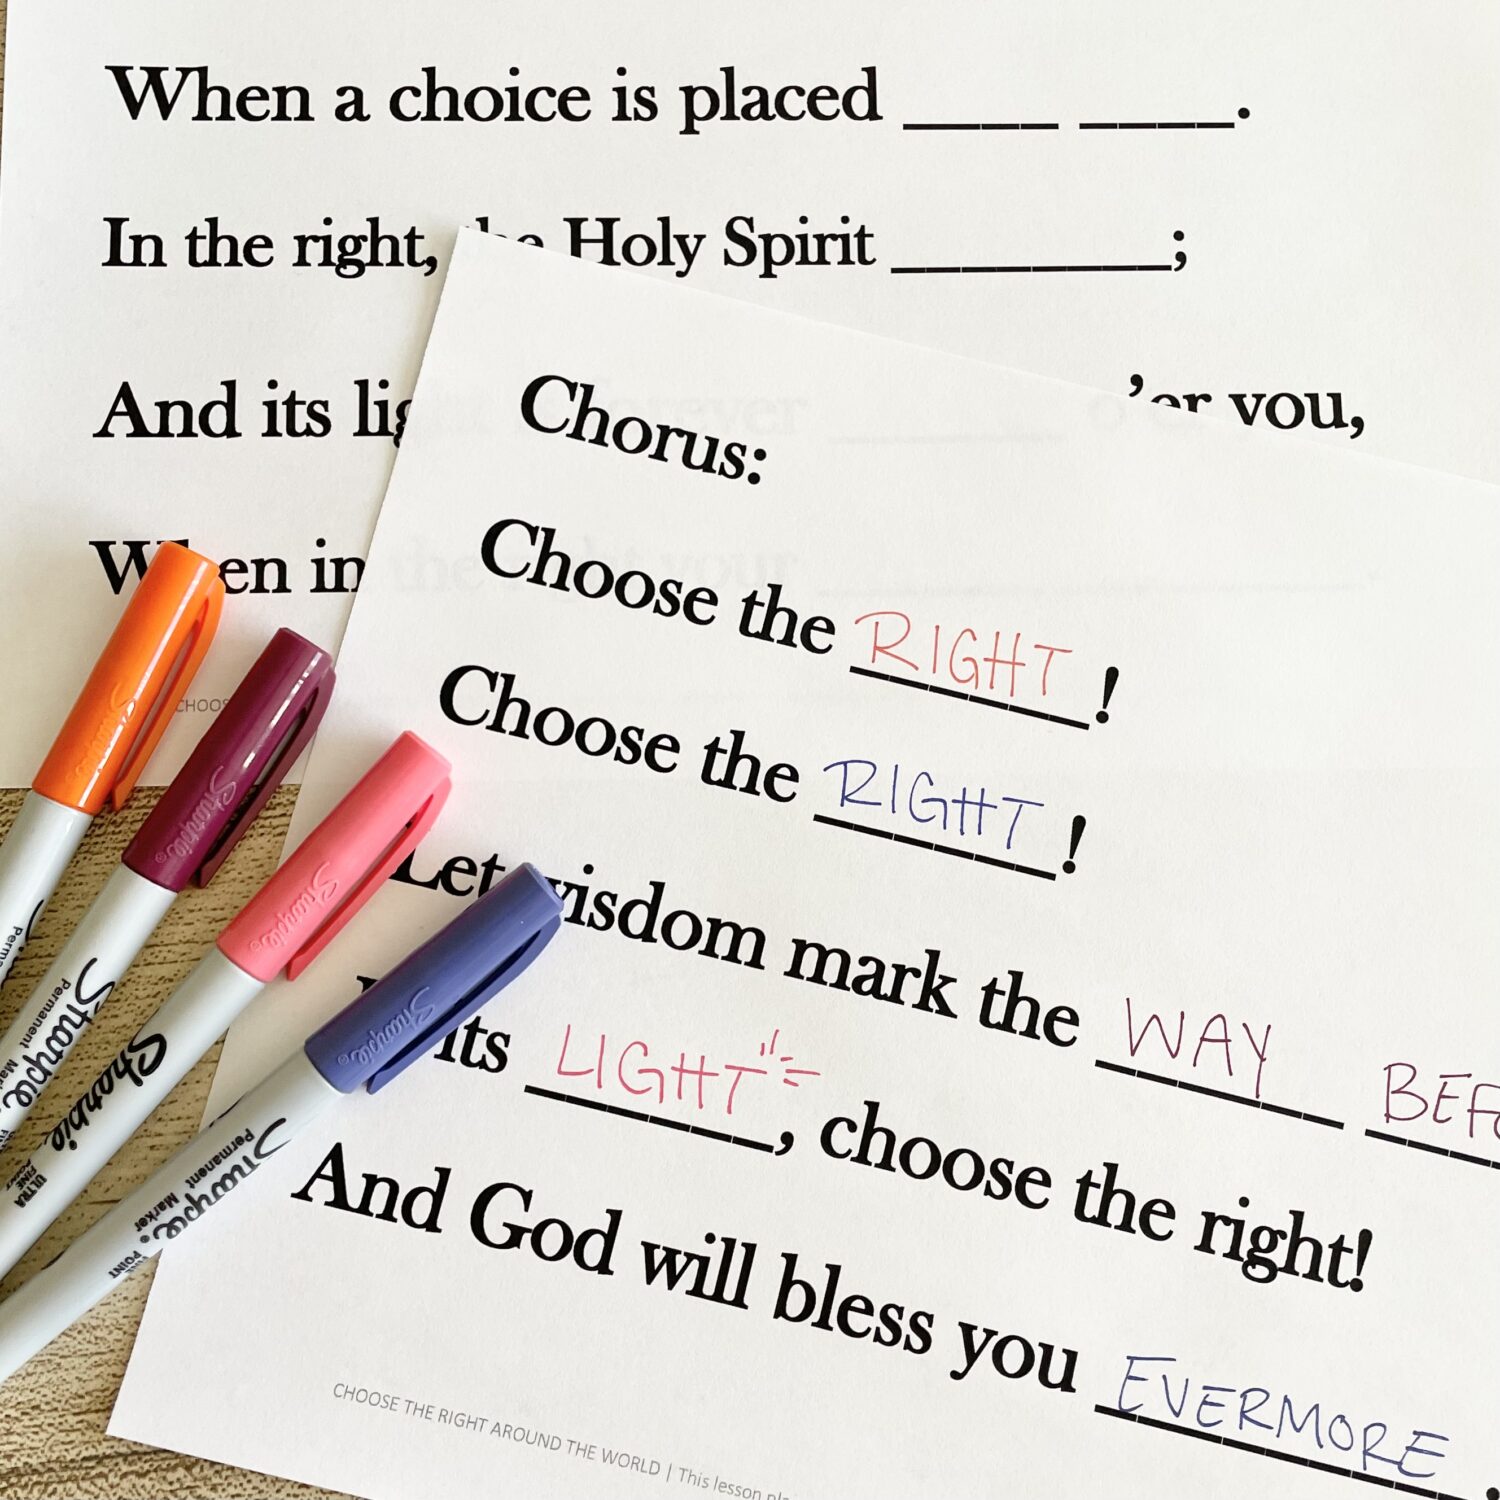 When a choice is placed ____ ____.
In the right, the Holy Spirit ________;
And its light forever ______ o'er you,
When in the right your ________
CHOOS
Chorus:
Choose the RIGHT!
Choose the RIGHT!
Let wisdom mark the WAY BEFO
its LIGHT, choose the right!
And God will bless you EVERMORE.
CHOOSE THE RIGHT AROUND THE WORLD | This lesson pla
Sharpie
Sharpie
Sharpie
Sharpie
Perma
Sharpie
Permanent Mark
Sharpie
ULTRA FINE POINT
Sharpie
Permanent Marker
POINT